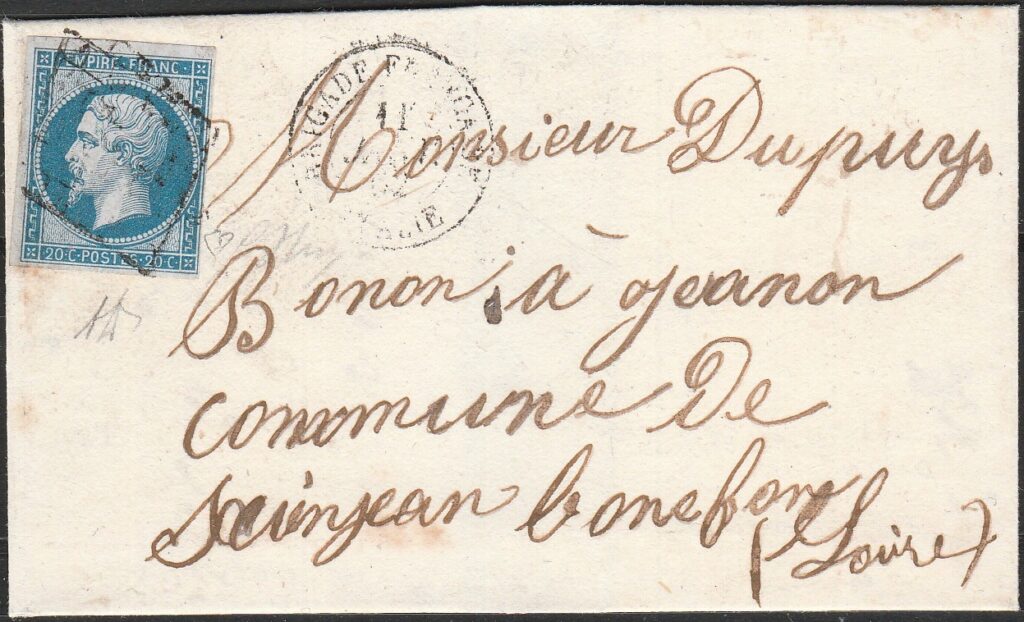 EMPIRE FRANC
20·C·POSTES·20·C
BRIGADE FRANÇAISE
11
ITALIE
Monsieur Dupuys
Bonon à Jeanon
commune De
seinjean bonefon
(Loire)